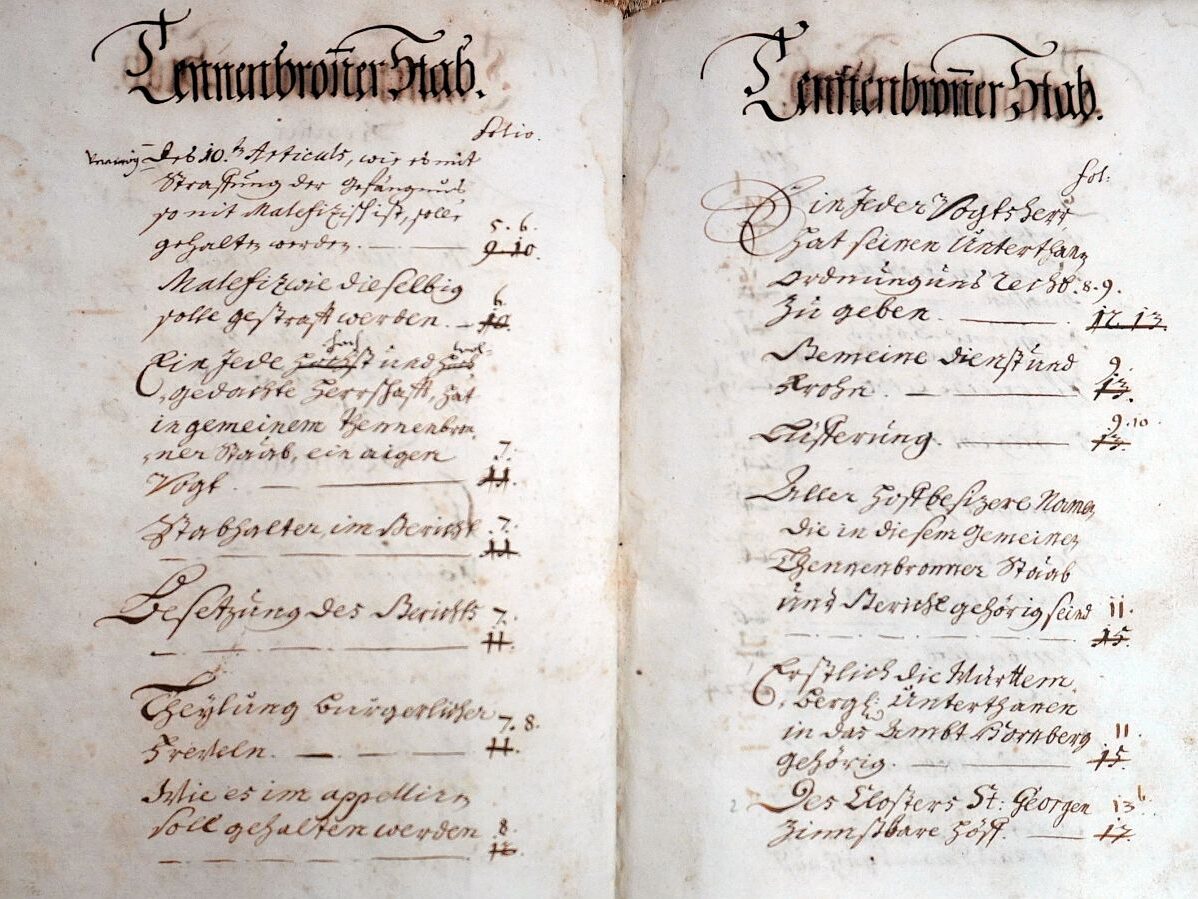 Tennenbroñer Stab.
Folio.
Des 10.ᵗᵉ Articuls, wie es mit
Straffung der Gefängnus
so nit Malefizisch ist, solle
gehalten werden. 5. 6.
9. 10.
Malefiz wie dieselbig 6.
solle gestrafft werden. 10.
Ein Jede hochst und
gedachte Herrschafft, hat
in gemeinem Thennenbron
ner Staab, ein aigen 7.
Vogt. 11.
Stabhalter im Gericht 7.
11.
Besetzung des Gerichts 7.
11.
Theylung burgerlicher 7. 8.
Freveln. 11.
Wie es im appelliren
soll gehalten werden 8.
12.
Tennenbroñer Stab.
fol:
Ein Jeder Vogtsherr
hat seinen Unterthanen
Ordnung und Recht 8. 9.
Zu geben. 12. 13.
Gemeine Dienst und 9.
Frohn. 13.
Aufferung. 9. 10
13.
Aller Hoffbesizere Namen
die in diesem Gemeinen
Thennenbronner Staab
und Gericht gehörig seind 11.
15.
Erstlich die Württem
bergl: Unterthanen
in das Ambt Hornberg 11.
gehörig. 15.
Des Closters St: Georgen 13
Zinnsbare Höff. 17.